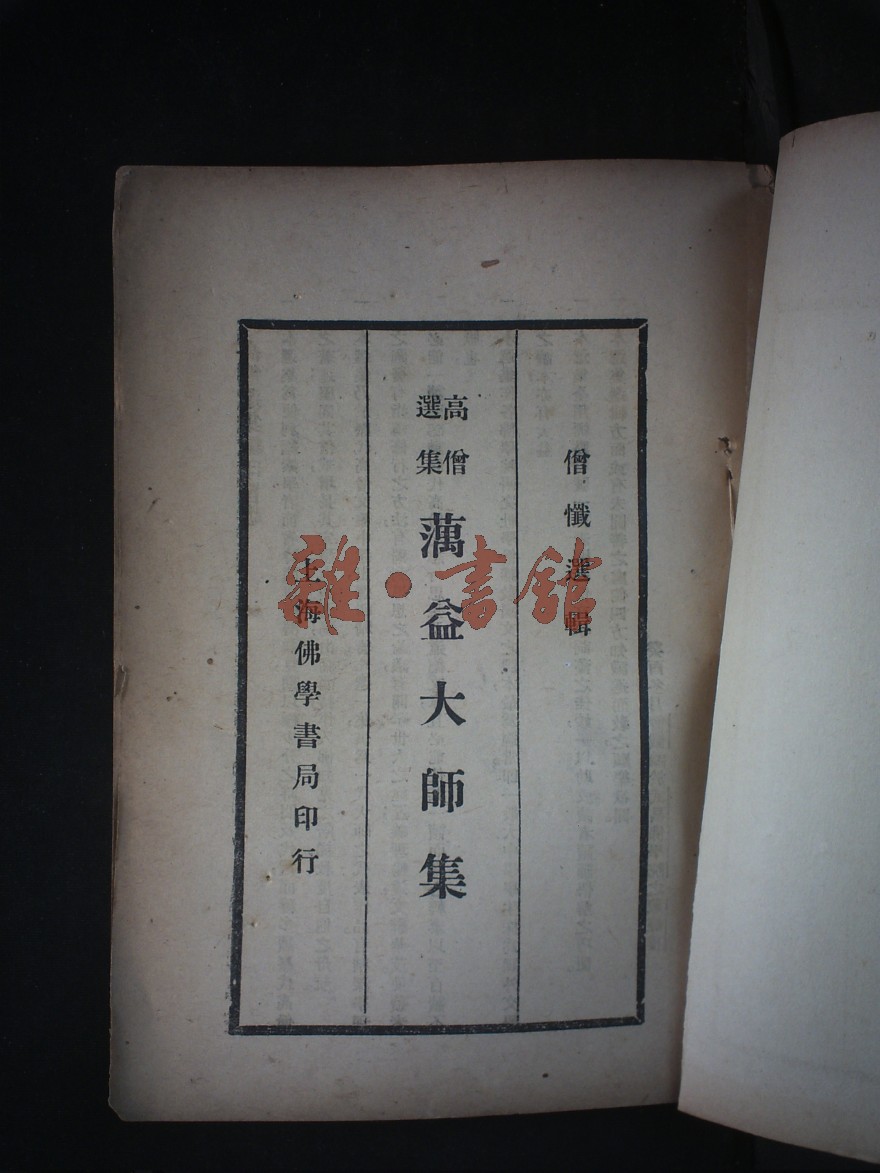 僧懺選輯
高僧選集
蕅益大師集
上海佛學書局印行
雜·書館